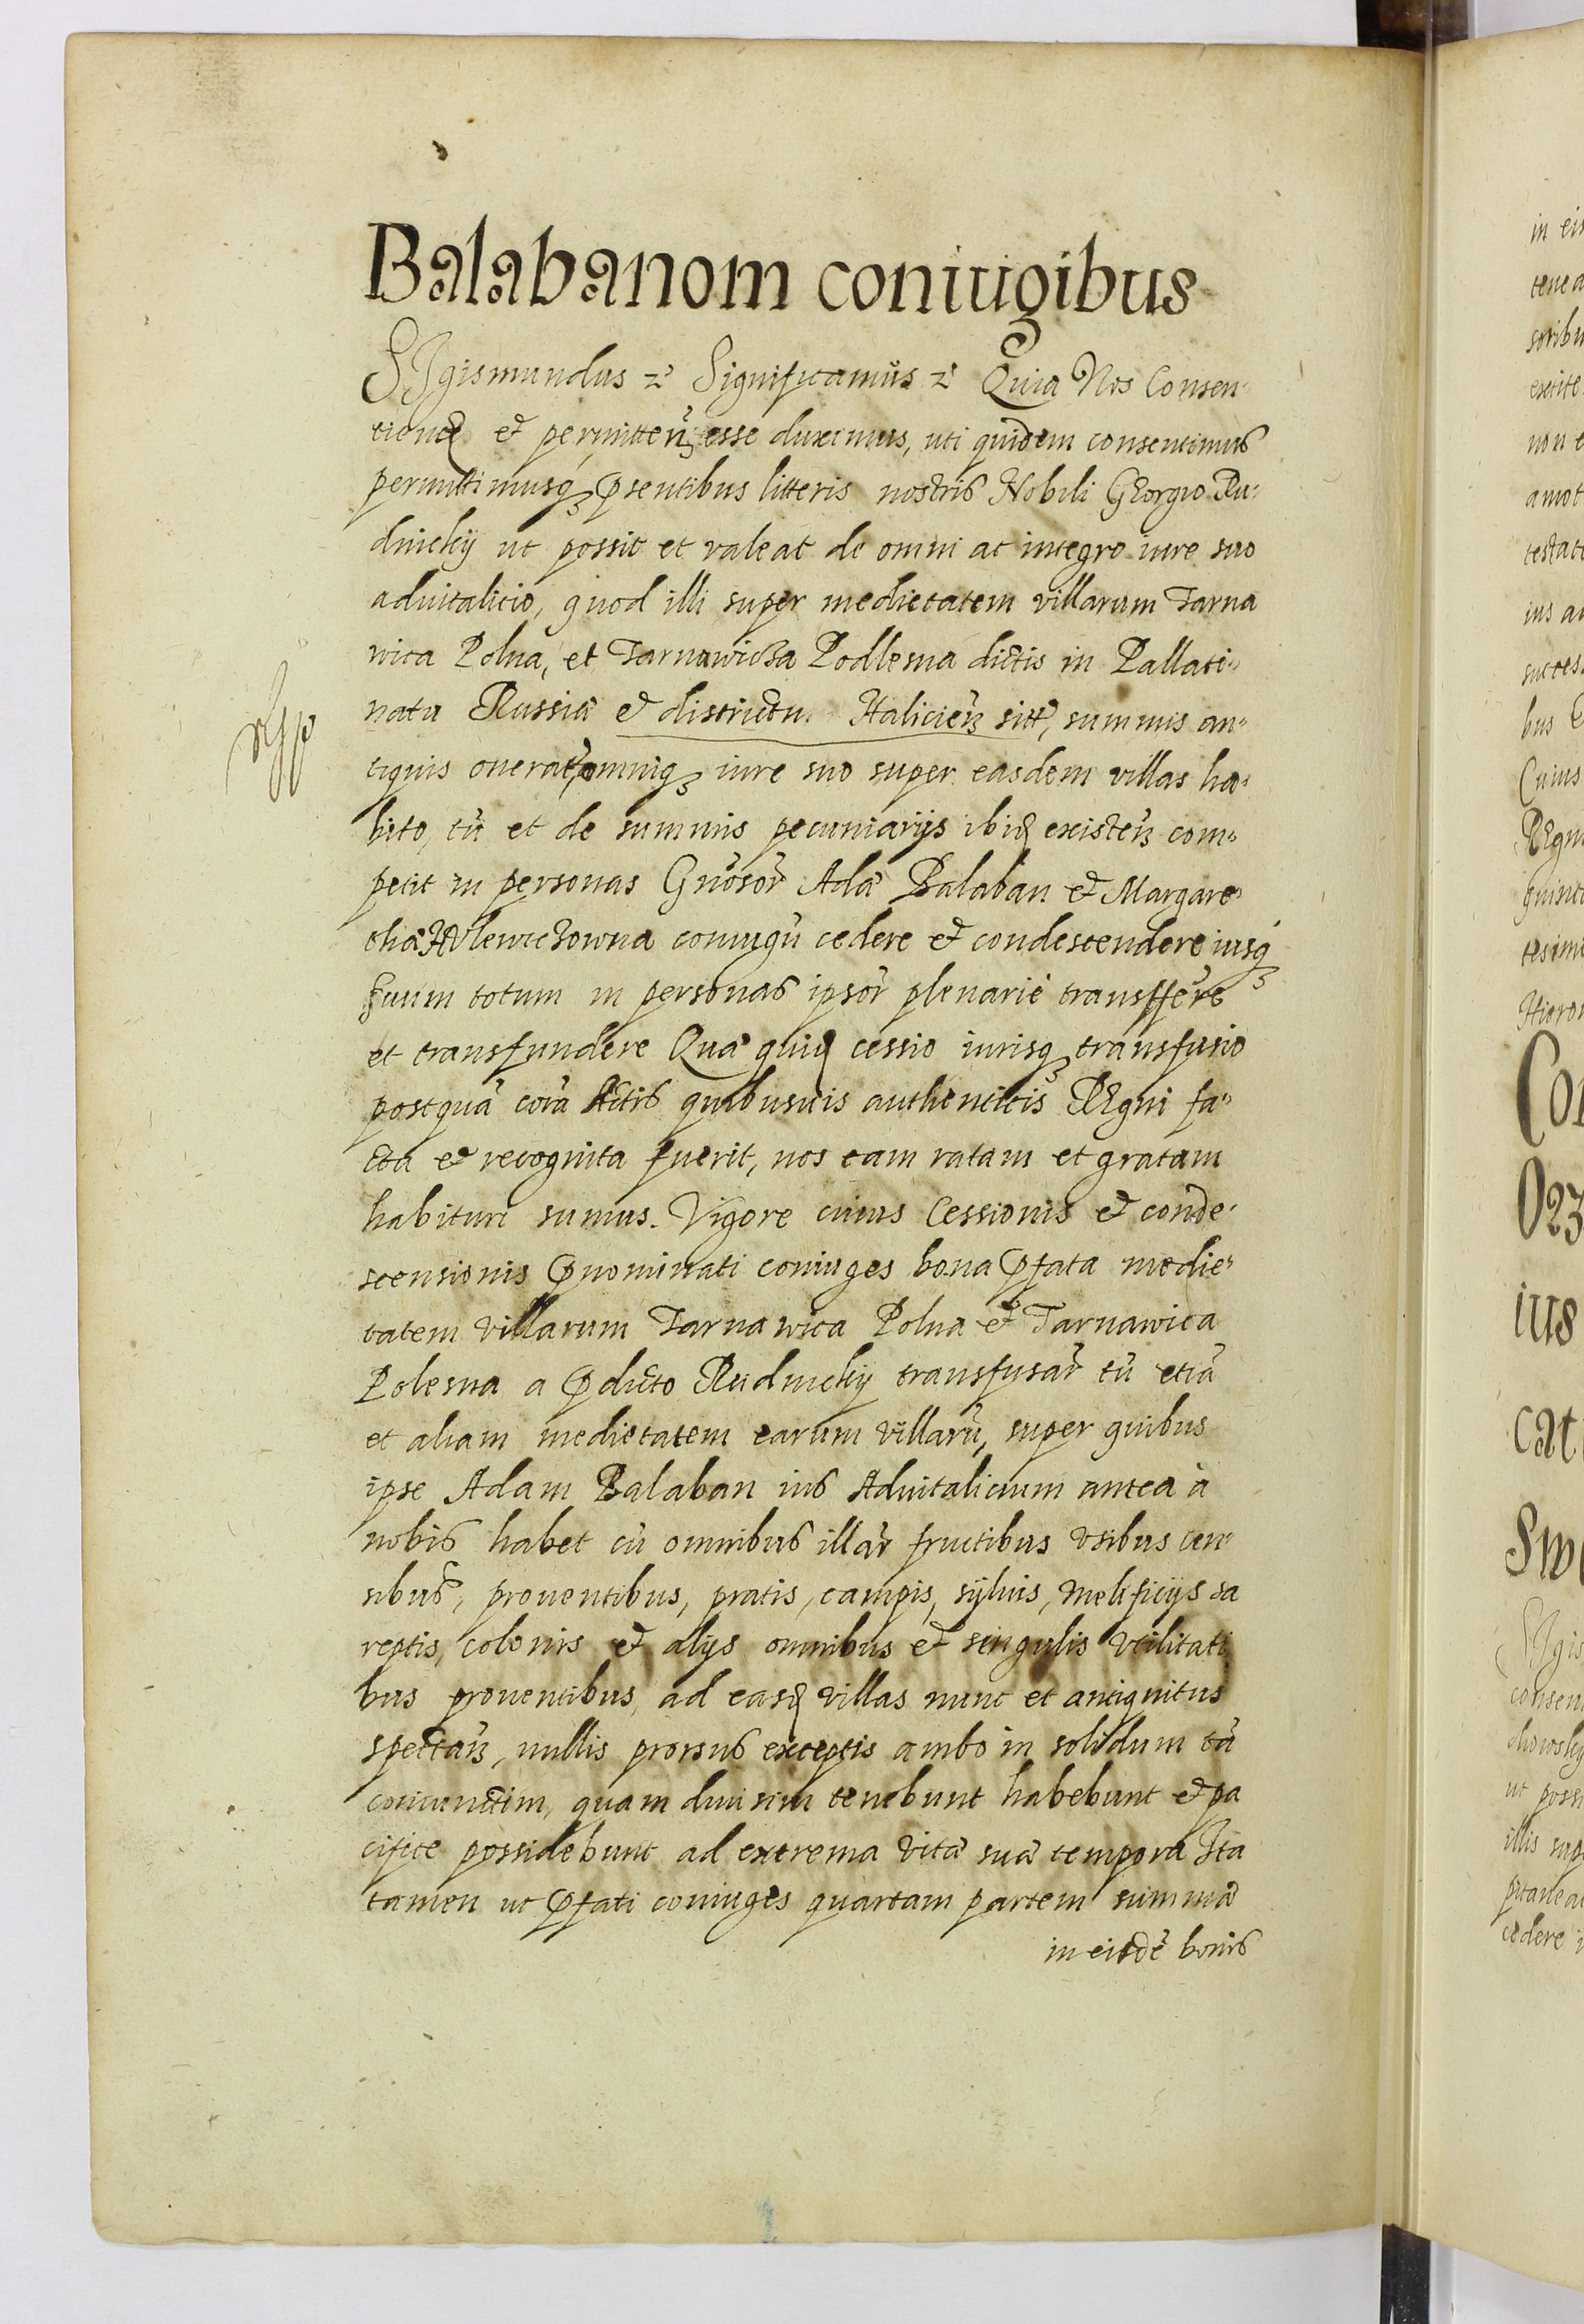 Balabanom coniugibus
SIgismundus &c Significamus &c Quia Nos Consen-
tiend et permitten esse duximus, uti quidem consentimus
permittimusq psentibus litteris nostris Nobili GEorgio Ru-
dnicky ut possit et valeat de omni ac integro iure suo
aduitalicio, quod illi super medietatem villarum Tarna
wica Polna, et Tarnawicza Podlesna dictis in Pallati-
natu Russiæ et districtu Haliciens sitt, summis an-
tiquis onerat, omniq iure suo super easdem villas ha-
bito, tū et de summis pecuniarijs ibid existens com-
petit in personas Gnosor Adæ Balaban et Margare-
thæ Hulewiczowna coniugū cedere et condescendere iusq
suum totum in personas ipsor plenariè transffere
et transfundere Quæ quid cessio iurisq transfusio
postquā corā Actis quibusuis authenticis REgni fa-
cta et recognita fuerit, nos eam ratam et gratam
habituri sumus. Vigore cuius Cessionis et conde-
scensionis pnominati coniuges bona pfata medie-
tatem villarum Tarnawica Polna et Tarnawica
Polesna a pdicto Rudnicky transfusar tū etiā
et aliam medietatem earum villarū, super quibus
ipse Adam Balaban ius Aduitalicium antea à
nobis habet cū omnibus illar fructibus vsibus cen-
sibus, prouentibus, pratis, campis, syluis, melificijs sa
reptis, colonis et alijs omnibus et singulis vtilitati
bus prouentibus, ad easd villas nunc et antiquitus
spectan, nullis prorsus exceptis ambo in solidum tā
coniunctim, quam diuisim tenebunt habebunt et pa
cifice possidebunt ad extrema vitæ suæ tempora Ita
tamen ut pfati coniuges quartam partem summæ
in eisdē bonis
in ei
tene a
soribu
non e
amot
testat
ius a
succes
bus
Cuius
REgn
quint
tesim
Hiero
Co
023
ius
cat
Sw
SIgis
consen
ut poss
illis sup
cedere i